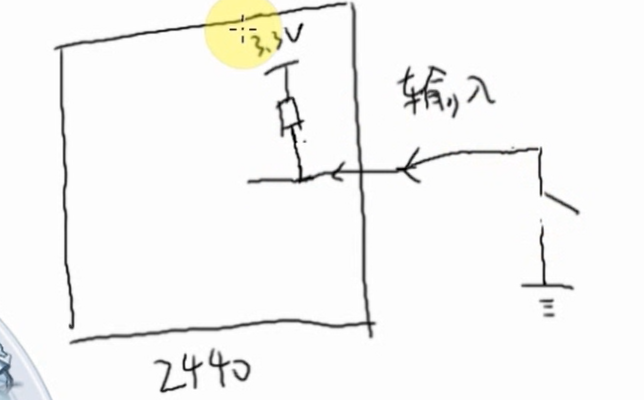 3.3V
输入
2440